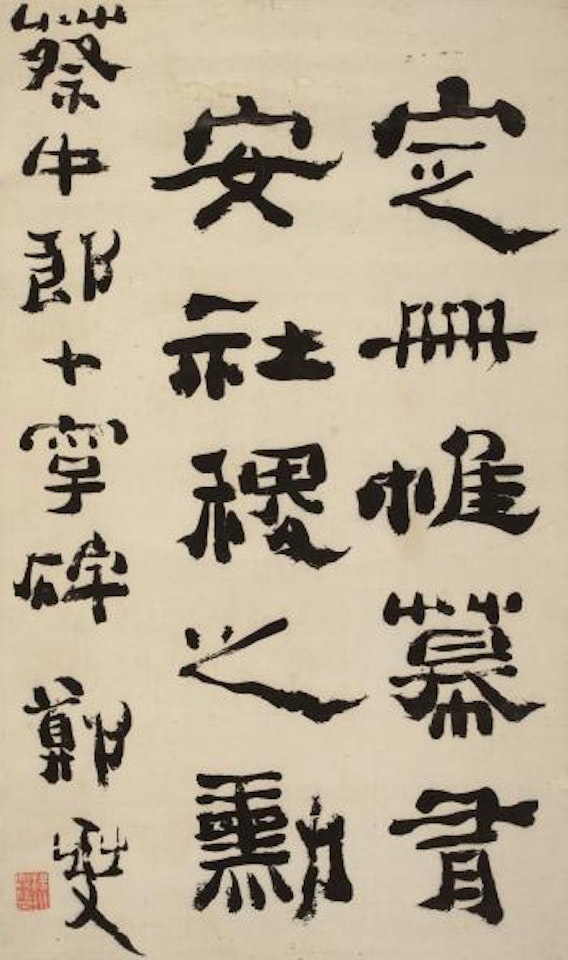 定冊帷幕有
安社稷之勳
蔡中郎十字碑 鄭燮